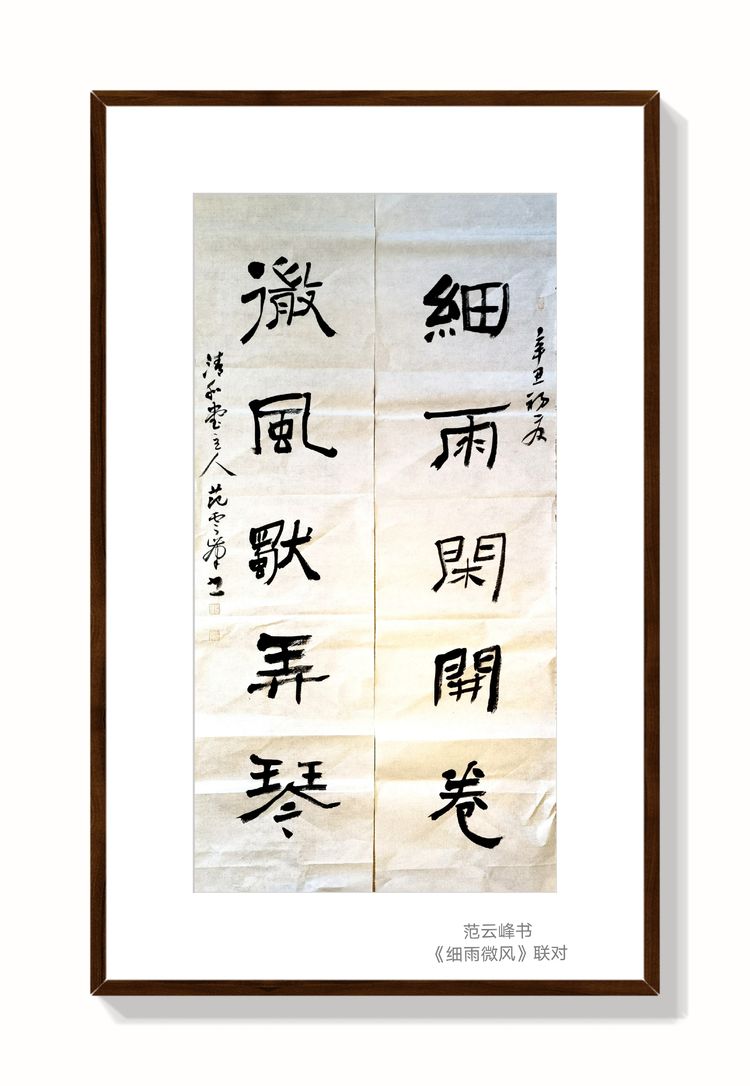 細雨閑開卷
微風獨弄琴
辛丑初夏
清和堂主人 范雲峯书
范云峰书
《细雨微风》联对